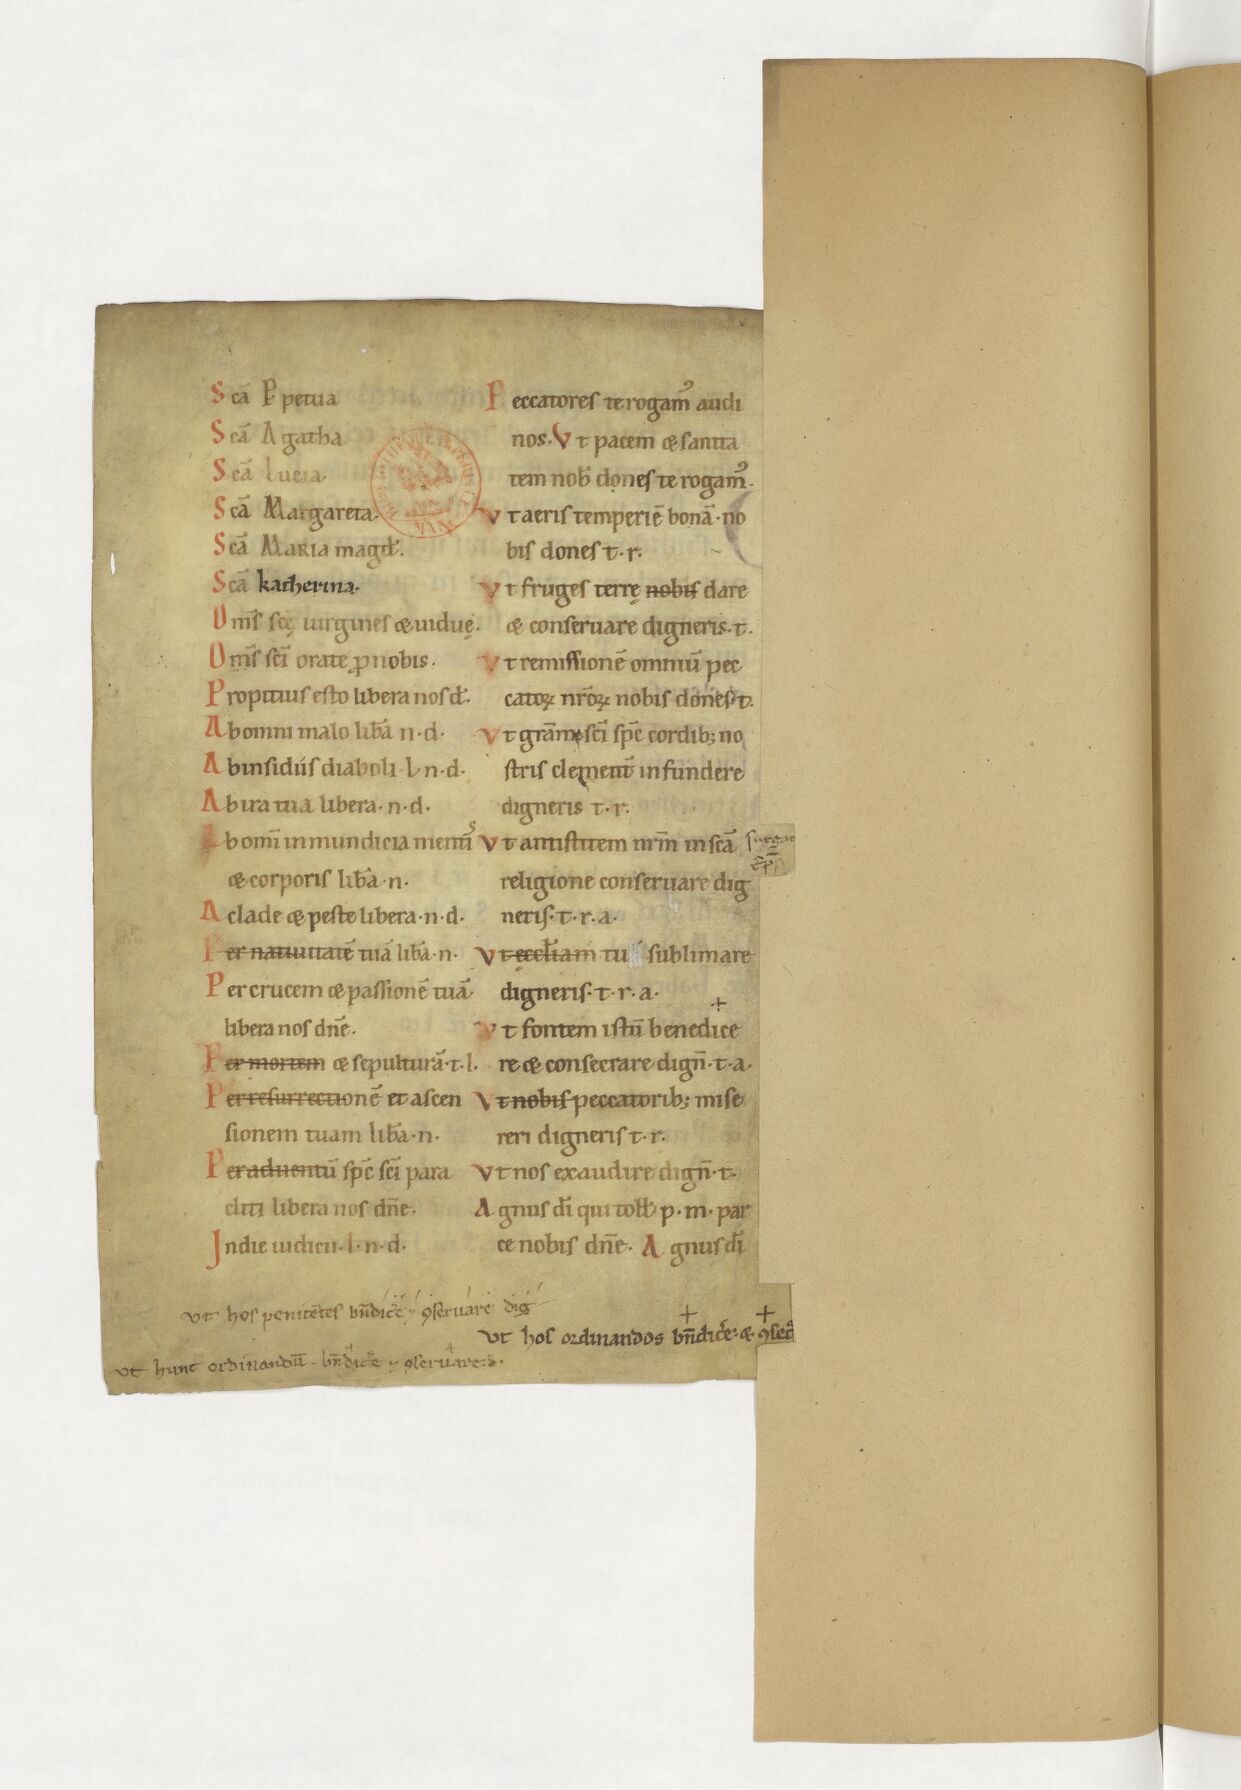 Scā Ppetua
Scā Agatha
Scā Lucia
Scā Margareta.
Scā Maria magd̄.
Scā katherina.
Om̄s scę uirgines & uiduę.
Om̄s scī orate ꝓ nobis.
Propitius esto libera nos d̄.
Ab omni malo lib̄a n.d.
Ab insidiis diaboli.l.n.d.
Ab ira tua libera.n.d.
Ab omī inmundicia mentis
& corporis lib̄a.n.
A clade & peste libera.n.d.
Per natiuitatē tuā lib̄a.n.
Per crucem & passionē tuā
libera nos dn̄e.
Per mortem & sepulturā.t.l.
Per resurrectionē et ascen
sionem tuam lib̄a.n.
Per aduentū sp̄c scī para
cliti libera nos dn̄e.
In die iudicii.l.n.d.
Peccatores te rogamꝰ audi
nos. Vt pacem & sanita
tem nob̄ dones te rogamꝰ.
Vt aeris temperiē bonā.no
bis dones t.r.
Vt fruges terrę nobis dare
& conseruare digneris.t.
Vt remissionē omniū pec
catoꝝ nr̄oꝝ nobis dones.t.
Vt grām scī sp̄c cordib; no
stris clement̄ infundere
digneris t.r.
Vt antistitem nr̄m in scā
religione conseruare dig
neris.t.r.a.
Vt eccl̄iam tu sublimare
digneris.t.r.a.
Vt fontem istū benedice
re & consecrare dign̄.t.a.
Vt nobis peccatorib; mise
reri digneris t.r.
Vt nos exaudire dign̄.t.
Agnus dī qui toll̄ p.m. par
ce nobis dn̄e. Agnus dī
Vt hos penitētes bn̄dic̄e ꝯseruare diḡ
Vt hos ordinandos bn̄dic̄e: & ꝯsec̄
Vt hunc ordinandū. bn̄dic̄e ꝯseruare.